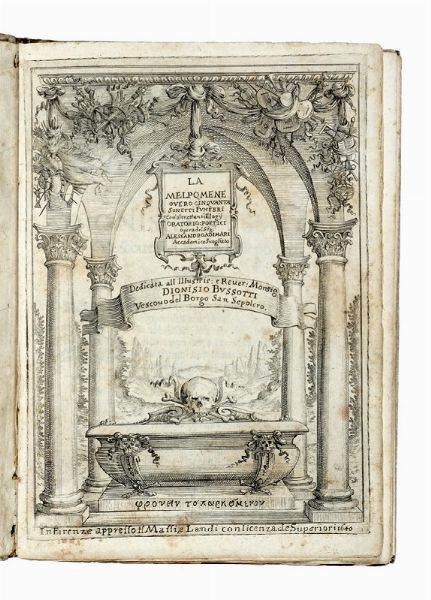 LA
MELPOMENE
OVERO CINQVANTA
SONETTI FVNEBRI
ORATORIO: POETICI
opera del Sig.
ALESSANDRO ADIMARI
Accademico Suegliato
Dedicata all Illustris: e Reuer: Monsig.
DIONISIO BVSSOTTI
Vescouo del Borgo San Sepolcro.
In Firenze appresso il Massi e Landi con licenza de Superiori 1640